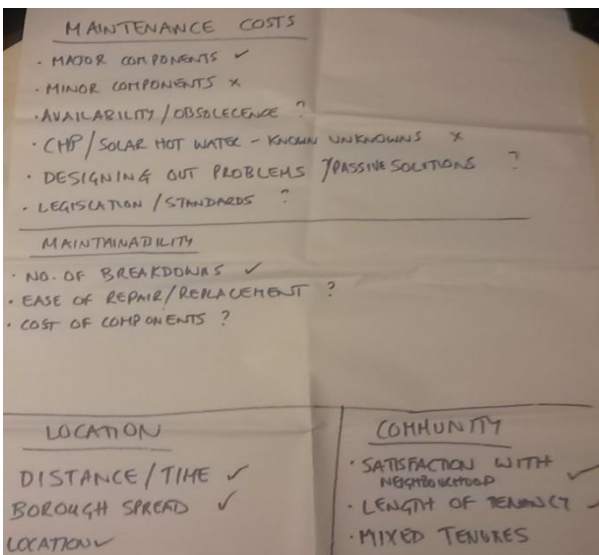 MAINTENANCE COSTS
· MAJOR COMPONENTS ✓
· MINOR COMPONENTS x
· AVAILABILITY/OBSOLECENCE ?
· CHP/SOLAR HOT WATER - KNOWN UNKNOWNS x
· DESIGNING OUT PROBLEMS /PASSIVE SOLUTIONS ?
· LEGISLATION/STANDARDS ?
MAINTAINABILITY
· NO. OF BREAKDOWNS ✓
· EASE OF REPAIR/REPLACEMENT ?
· COST OF COMPONENTS ?
LOCATION
DISTANCE/TIME ✓
BOROUGH SPREAD ✓
LOCATION ✓
COMMUNITY
· SATISFACTION WITH
NEIGHBOURHOOD ✓
· LENGTH OF TENANCY ✓
· MIXED TENURES